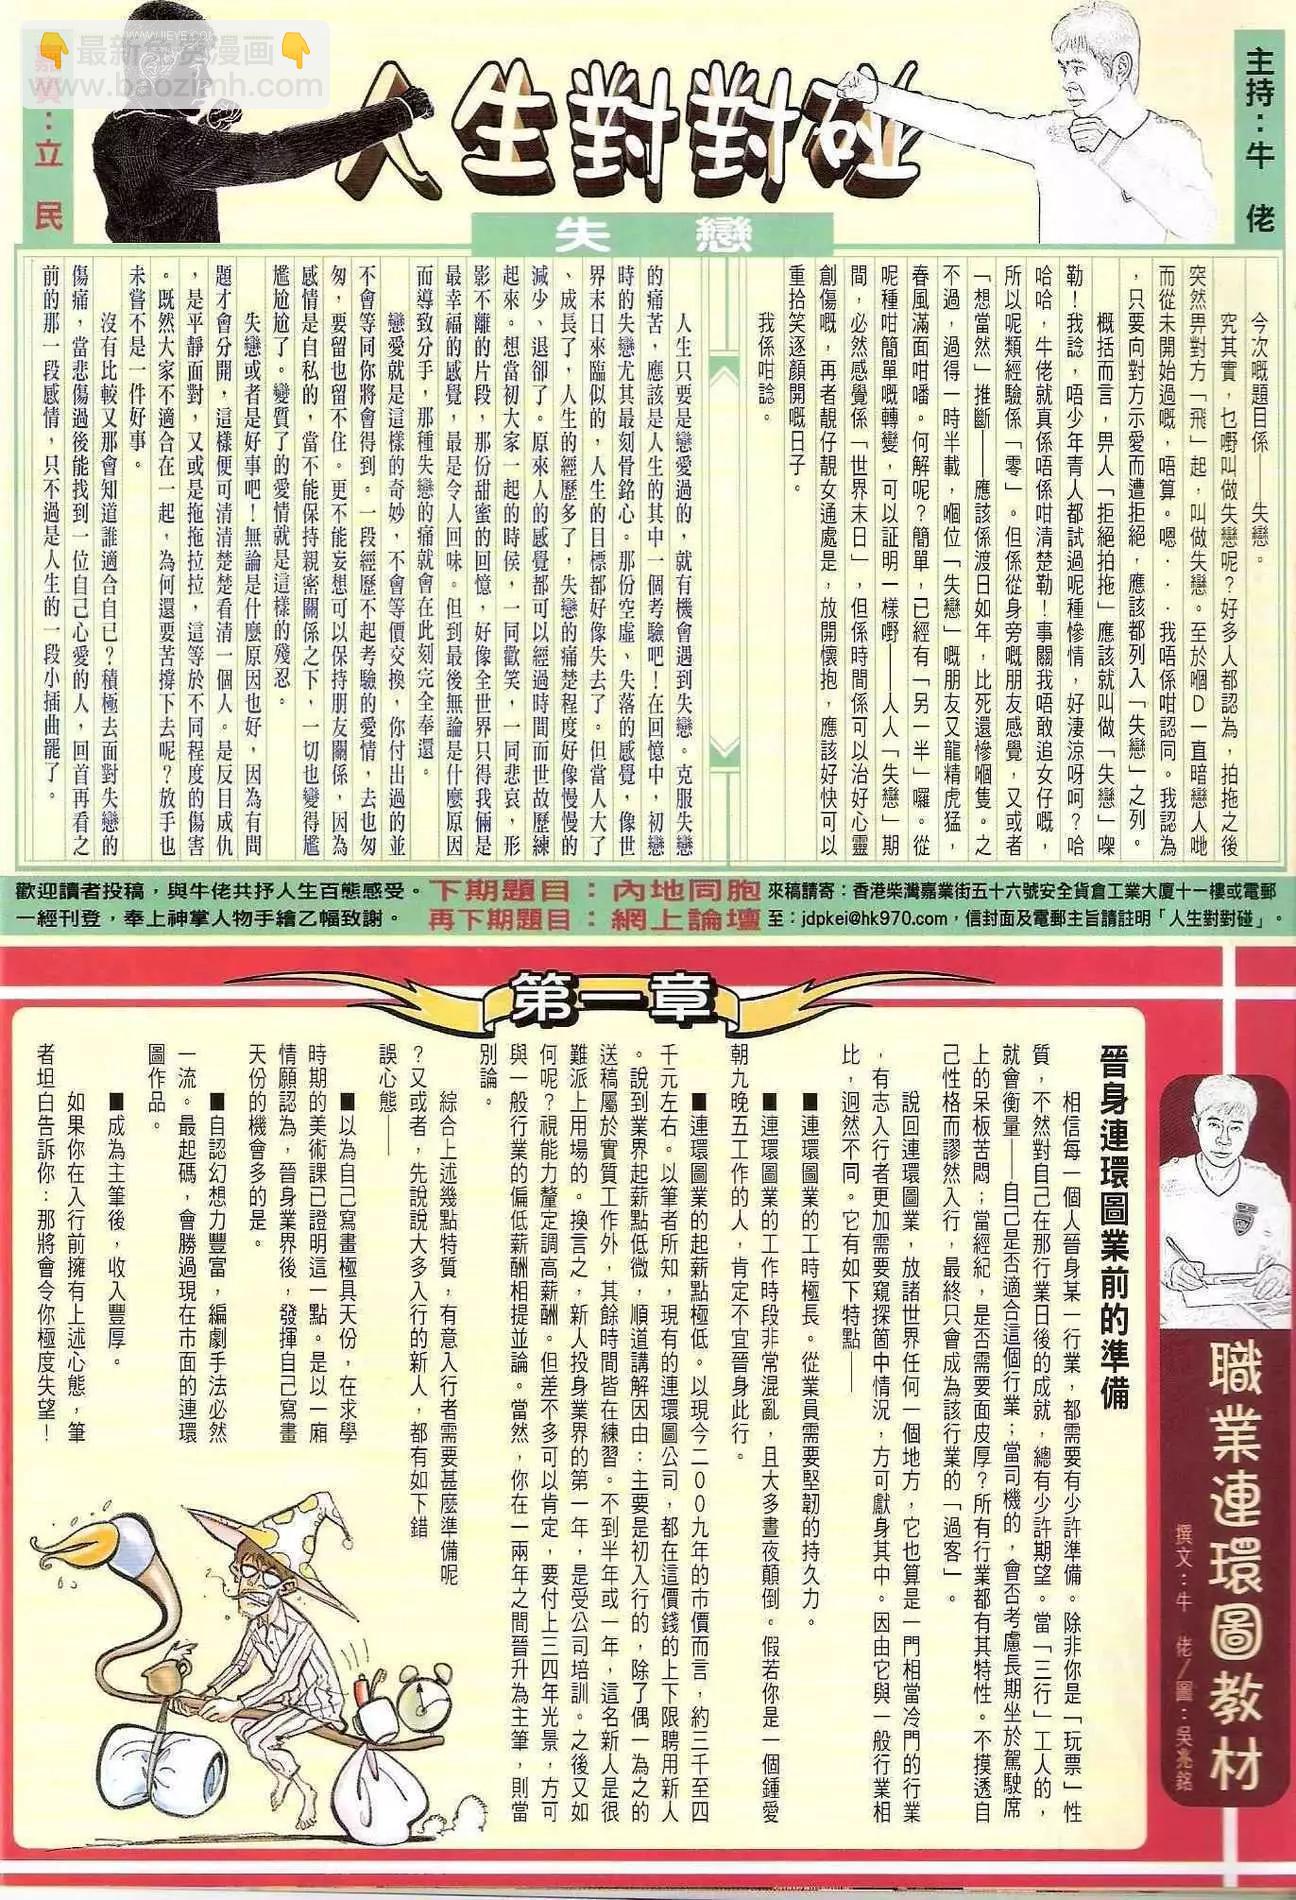 WWW.JIEYE.COM
最新免费漫画
baozimh.com
嘉賓：立民
人生對對碰
主持：牛佬
失戀
今次嘅題目係——失戀。
究其實，乜嘢叫做失戀呢？好多人都認為，拍拖之後
突然畀對方「飛」起，叫做失戀。至於嗰D一直暗戀人哋
而從未開始過嘅，唔算。嗯...我唔係咁認同。我認為
，只要向對方示愛而遭拒絕，應該都列入「失戀」之列。
概括而言，畀人「拒絕拍拖」應該就叫做「失戀」㗎
勒！我諗，唔少年青人都試過呢種慘情，好淒涼呀呵？哈
哈哈，牛佬就真係唔係咁清楚勒！事關我唔敢追女仔嘅，
所以呢類經驗係「零」。但係從身旁嘅朋友感覺，又或者
「想當然」推斷——應該係渡日如年，比死還慘嗰隻。之
不過，過得一時半載，嗰位「失戀」嘅朋友又龍精虎猛，
春風滿面咁噃。何解呢？簡單，已經有「另一半」囉。從
呢種咁簡單嘅轉變，可以証明一樣嘢——人人「失戀」期
間，必然感覺係「世界末日」，但係時間係可以治好心靈
創傷嘅，再者靚仔靚女通處是，放開懷抱，應該好快可以
重拾笑逐顏開嘅日子。
我係咁諗。
人生只要是戀愛過的，就有機會遇到失戀。克服失戀
的痛苦，應該是人生的其中一個考驗吧！在回憶中，初戀
時的失戀尤其最刻骨銘心。那份空虛、失落的感覺，像世
界末日來臨似的，人生的目標都好像失去了。但當人大了
、成長了，人生的經歷多了，失戀的痛楚程度好像慢慢的
減少、退卻了。原來人的感覺都可以經過時間而世故歷練
起來。想當初大家一起的時候，一同歡笑，一同悲哀，形
影不離的片段，那份甜蜜的回憶，好像全世界只得我倆是
最幸福的感覺，最是令人回味。但到最後無論是什麼原因
而導致分手，那種失戀的痛就會在此刻完全奉還。
戀愛就是這樣的奇妙，不會等價交換，你付出過的並
不會等同你將會得到。一段經歷不起考驗的愛情，去也匆
匆，要留也留不住。更不能妄想可以保持朋友關係，因為
感情是自私的，當不能保持親密關係之下，一切也變得尷
尷尬尬了。變質了的愛情就是這樣的殘忍。
失戀或者是好事吧！無論是什麼原因也好，因為有問
題才會分開，這樣便可清清楚楚看清一個人。是反目成仇
，是平靜面對，又或是拖拖拉拉，這等於不同程度的傷害
。既然大家不適合在一起，為何還要苦撐下去呢？放手也
未嘗不是一件好事。
沒有比較又那會知道誰適合自己？積極去面對失戀的
傷痛，當悲傷過後能找到一位自己心愛的人，回首再看之
前的那一段感情，只不過是人生的一段小插曲罷了。
歡迎讀者投稿，與牛佬共抒人生百態感受。
一經刊登，奉上神掌人物手繪乙幅致謝。
下期題目：內地同胞
再下期題目：網上論壇
來稿請寄：香港柴灣嘉業街五十六號安全貨倉工業大廈十一樓或電郵
至：jdpkei@hk970.com，信封面及電郵主旨請註明「人生對對碰」。
第一章
職業連環圖教材
撰文：牛佬／圖：吳兆銘
晉身連環圖業前的準備
相信每一個人晉身某一行業，都需要有少許準備。除非你是「玩票」性
質，不然對自己在那行業日後的成就，總有少許期望。當「三行」工人的，
就會衡量——自己是否適合這個行業；當司機的，會否考慮長期坐於駕駛席
上的呆板苦悶；當經紀，是否需要面皮厚？所有行業都有其特性。不摸透自
己性格而謬然入行，最終只會成為該行業的「過客」。
說回連環圖業，放諸世界任何一個地方，它也算是一門相當冷門的行業
，有志入行者更加需要窺探箇中情況，方可獻身其中。因由它與一般行業相
比，迥然不同。它有如下特點——
■連環圖業的工時極長。從業員需要堅韌的持久力。
■連環圖業的工作時段非常混亂，且大多晝夜顛倒。假若你是一個鍾愛
朝九晚五工作的人，肯定不宜晉身此行。
■連環圖業的起薪點極低。以現今二００九年的市價而言，約三千至四
千元左右。以筆者所知，現有的連環圖公司，都在這價錢的上下限聘用新人
。說到業界起薪點低微，順道講解因由：主要是初入行的，除了偶一為之的
送稿屬於實質工作外，其餘時間皆在練習。不到半年或一年，這名新人是很
難派上用場的。換言之，新人投身業界的第一年，是受公司培訓。之後又如
何呢？視能力釐定調高薪酬。但差不多可以肯定，要付上三四年光景，方可
與一般行業的偏低薪酬相提並論。當然，你在一兩年之間晉升為主筆，則當
別論。
綜合上述幾點特質，有意入行者需要甚麼準備呢
？又或者，先說說大多入行的新人，都有如下錯
誤心態——
■以為自己寫畫極具天份，在求學
時期的美術課已證明這一點。是以一廂
情願認為，晉身業界後，發揮自己寫畫
天份的機會多的是。
■自認幻想力豐富，編劇手法必然
一流。最起碼，會勝過現在市面的連環
圖作品。
■成為主筆後，收入豐厚。
如果你在入行前擁有上述心態，筆
者坦白告訴你：那將會令你極度失望！